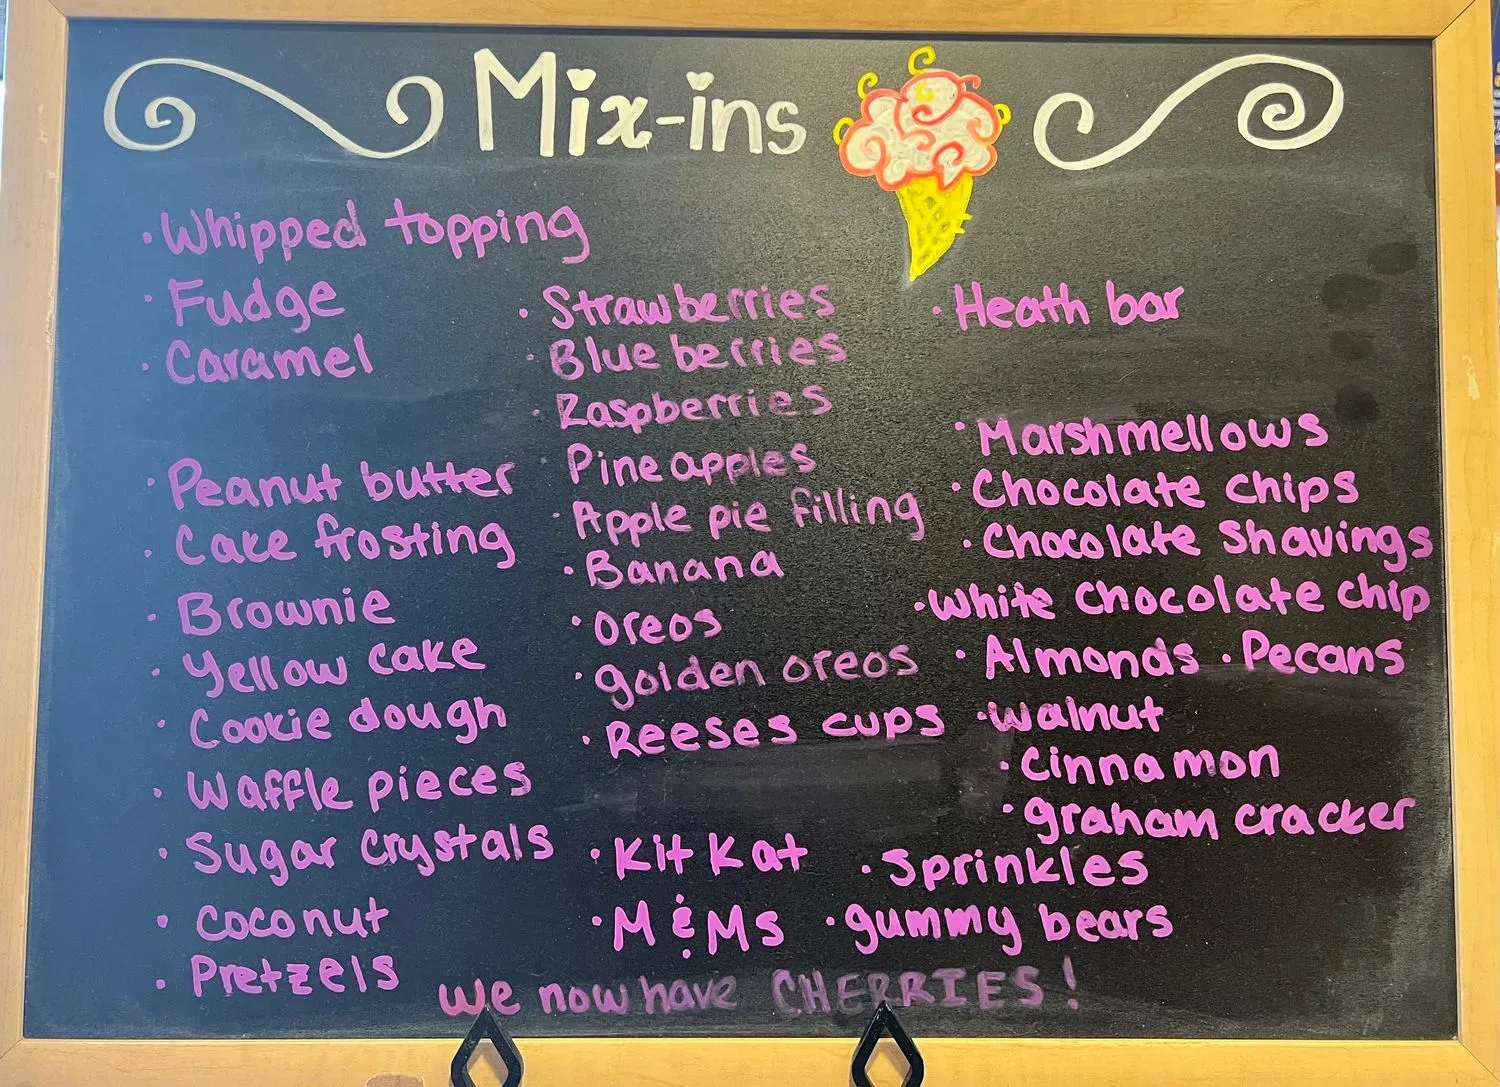 Mix-ins
· Whipped topping
· Fudge
· Caramel
· Peanut butter
· Cake frosting
· Brownie
· Yellow cake
· Cookie dough
· Waffle pieces
· Sugar crystals
· Coconut
· Pretzels
· Strawberries
· Blueberries
· Raspberries
· Pineapples
· Apple pie filling
· Banana
· Oreos
· golden oreos
· Reeses cups
· Kit Kat
· M & Ms
· Heath bar
· Marshmellows
· Chocolate chips
· Chocolate Shavings
· White chocolate chip
· Almonds · Pecans
· walnut
· Cinnamon
· graham cracker
· Sprinkles
· gummy bears
We now have CHERRIES!